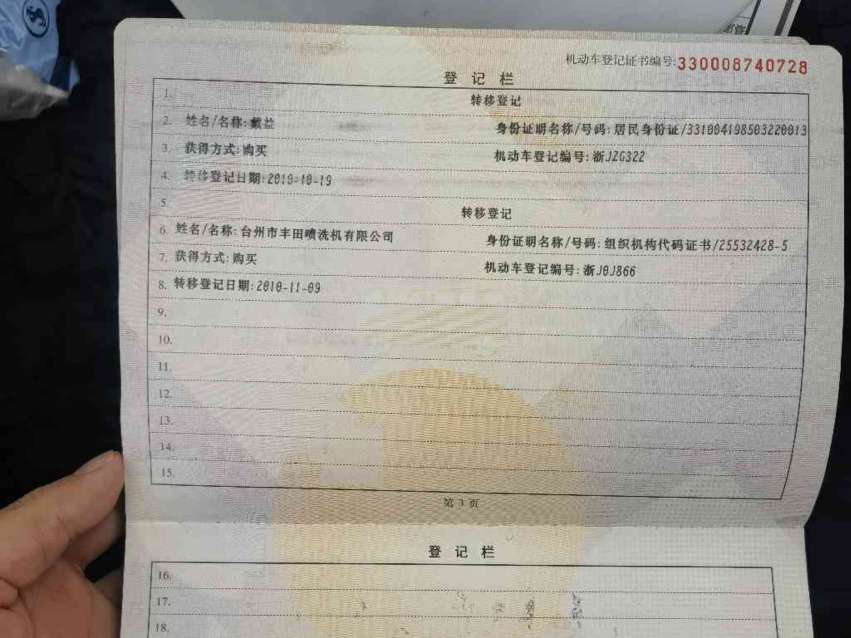 机动车登记证书编号:330008740728
登记栏
1. 转移登记
2. 姓名/名称:戴益 身份证明名称/号码:居民身份证/331004198503220013
3. 获得方式:购买 机动车登记编号:浙JZG322
4. 转移登记日期:2010-10-19
5. 转移登记
6. 姓名/名称:台州市丰田喷洗机有限公司 身份证明名称/号码:组织机构代码证书/25532428-5
7. 获得方式:购买 机动车登记编号:浙J0J866
8. 转移登记日期:2010-11-09
9.
10.
11.
12.
13.
14.
15.
第3页
登记栏
16.
17.
18.